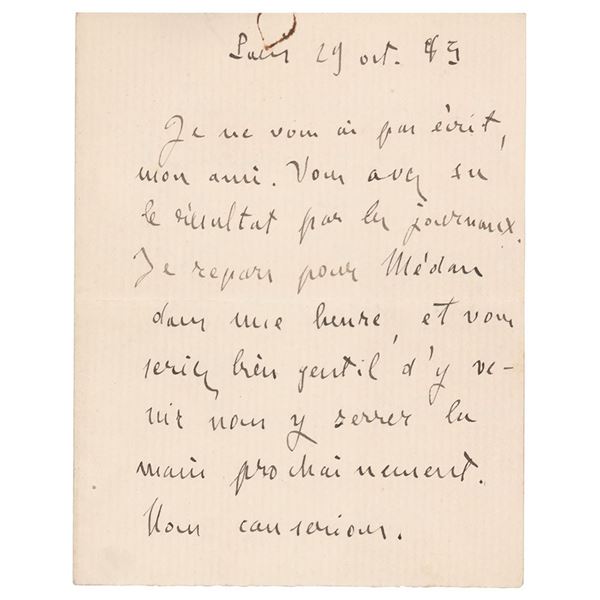 Paris 29 oct. 85
Je ne vous ai pas écrit,
mon ami. Vous avez su
le résultat par les journaux.
Je repars pour Médan
dans une heure, et vous
seriez bien gentil d'y ve-
nir nous y serrer la
main prochainement.
Nous causerions.